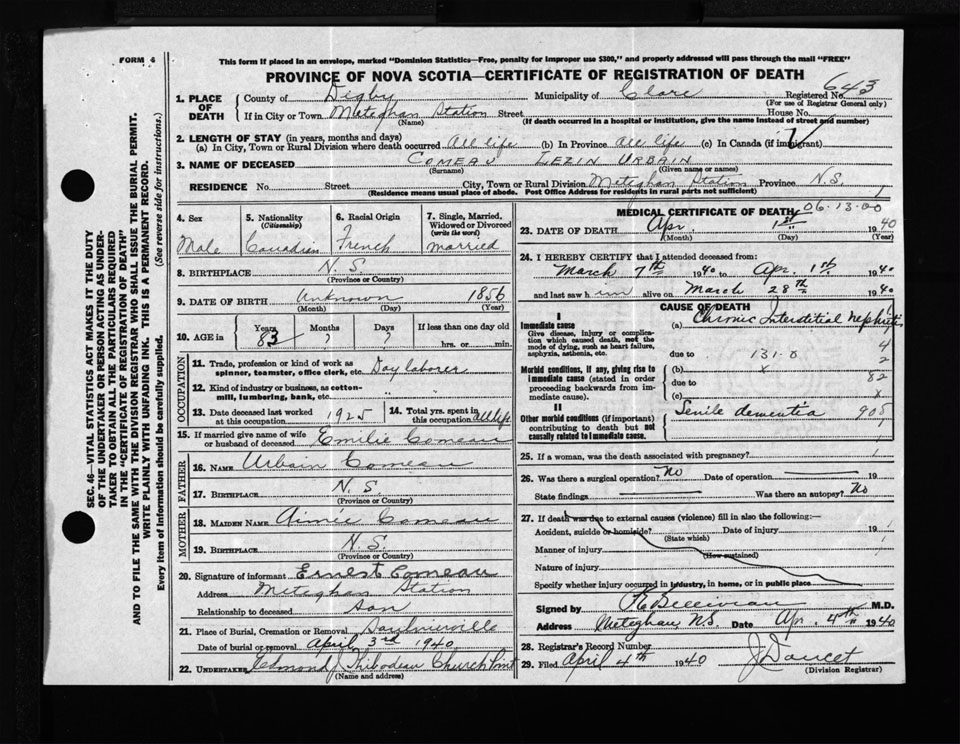 FORM 4
This form if placed in an envelope, marked "Dominion Statistics—Free, penalty for improper use $300," and properly addressed will pass through the mail "FREE"
PROVINCE OF NOVA SCOTIA—CERTIFICATE OF REGISTRATION OF DEATH
643
1. PLACE OF DEATH County of Digby Municipality of Clare Registered No.
(For use of Registrar General only)
If in City or Town Meteghan Station Street House No.
(Name) (If death occurred in a hospital or institution, give the name instead of street and number)
2. LENGTH OF STAY (in years, months and days)
(a) In City, Town or Rural Division where death occurred All life (b) In Province All life (c) In Canada (if immigrant)
3. NAME OF DECEASED COMEAU LEZIN URBAIN
(Surname) (Given name or names)
RESIDENCE No. Street City, Town or Rural Division Meteghan Station Province N.S.
(Residence means usual place of abode. Post Office Address for residents in rural parts not sufficient)
4. Sex 5. Nationality (Citizenship) 6. Racial Origin 7. Single, Married, Widowed or Divorced (write the word)
Male Canadian French married
8. BIRTHPLACE N.S.
(Province or Country)
9. DATE OF BIRTH Unknown 1856
(Month) (Day) (Year)
10. AGE in Years Months Days If less than one day old
83 ? ? hrs. or min.
OCCUPATION
11. Trade, profession or kind of work as spinner, teamster, office clerk, etc. Day laborer
12. Kind of industry or business, as cotton-mill, lumbering, bank, etc.
13. Date deceased last worked at this occupation 1925 14. Total yrs. spent in this occupation
15. If married give name of wife or husband of deceased Emilie Comeau
FATHER
16. NAME Urbain Comeau
17. BIRTHPLACE N.S.
(Province or Country)
MOTHER
18. MAIDEN NAME Aimée Comeau
19. BIRTHPLACE N.S.
(Province or Country)
20. Signature of informant Ernest Comeau
Address Meteghan Station
Relationship to deceased Son
21. Place of Burial, Cremation or Removal Saulnierville
Date of burial or removal April 3rd 1940
22. UNDERTAKER Edmond J Thibodeau Church Point
(Name and address)
MEDICAL CERTIFICATE OF DEATH 06-13-00
23. DATE OF DEATH Apr. 1st 1940
(Month) (Day) (Year)
24. I HEREBY CERTIFY that I attended deceased from:
March 7th 1940 to Apr. 1st 1940
and last saw him alive on March 28th 1940
CAUSE OF DEATH
I
Immediate cause (a) Chronic Interstitial Nephritis
Give disease, injury or complication which caused death, not the mode of dying, such as heart failure, asphyxia, asthenia, etc.
due to 131-0
Morbid conditions, if any, giving rise to immediate cause (stated in order proceeding backwards from immediate cause). (b) x
due to
(c)
4
2
82
x
II
Other morbid conditions (if important) contributing to death but not causally related to immediate cause. Senile dementia 905
25. If a woman, was the death associated with pregnancy?
26. Was there a surgical operation? No Date of operation 19
State findings Was there an autopsy? No
27. If death was due to external causes (violence) fill in also the following:—
Accident, suicide or homicide? Date of injury 19
(State which)
Manner of injury
(How sustained)
Nature of injury
Specify whether injury occurred in industry, in home, or in public place
Signed by M.D.
Address Meteghan, N.S. Date Apr. 4th 1940
28. Registrar's Record Number
29. Filed April 4th 1940 J. Doucet
(Division Registrar)
SEC. 46—VITAL STATISTICS ACT MAKES IT THE DUTY
OF THE UNDERTAKER OR PERSON ACTING AS UNDER-
TAKER TO OBTAIN ALL THE PARTICULARS REQUIRED
IN THE "CERTIFICATE OF REGISTRATION OF DEATH"
AND TO FILE THE SAME WITH THE DIVISION REGISTRAR WHO SHALL ISSUE THE BURIAL PERMIT.
WRITE PLAINLY WITH UNFADING INK. THIS IS A PERMANENT RECORD.
Every item of information should be carefully supplied. (See reverse side for instructions.)